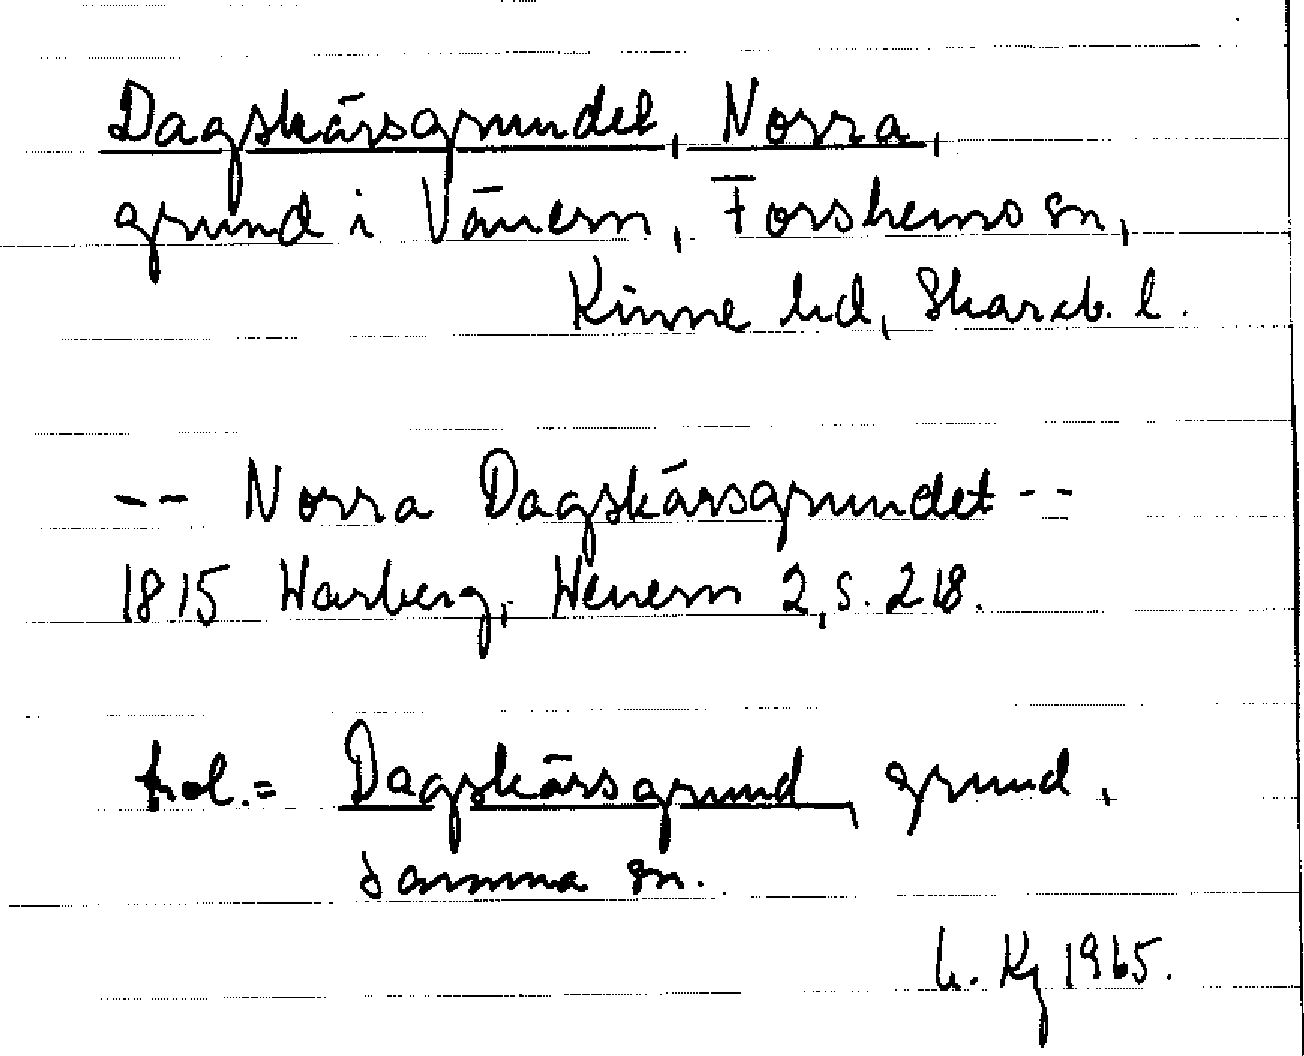 Dagskärsgrundet, Norra,
grund i Vänern, Forshems sn,
Kinne hd, Skarab. l.
-- Norra Dagskärsgrundet --
1815 Warberg, Wenern 2, s. 218.
trol. = Dagskärsgrund, grund,
samma sn.
1965.